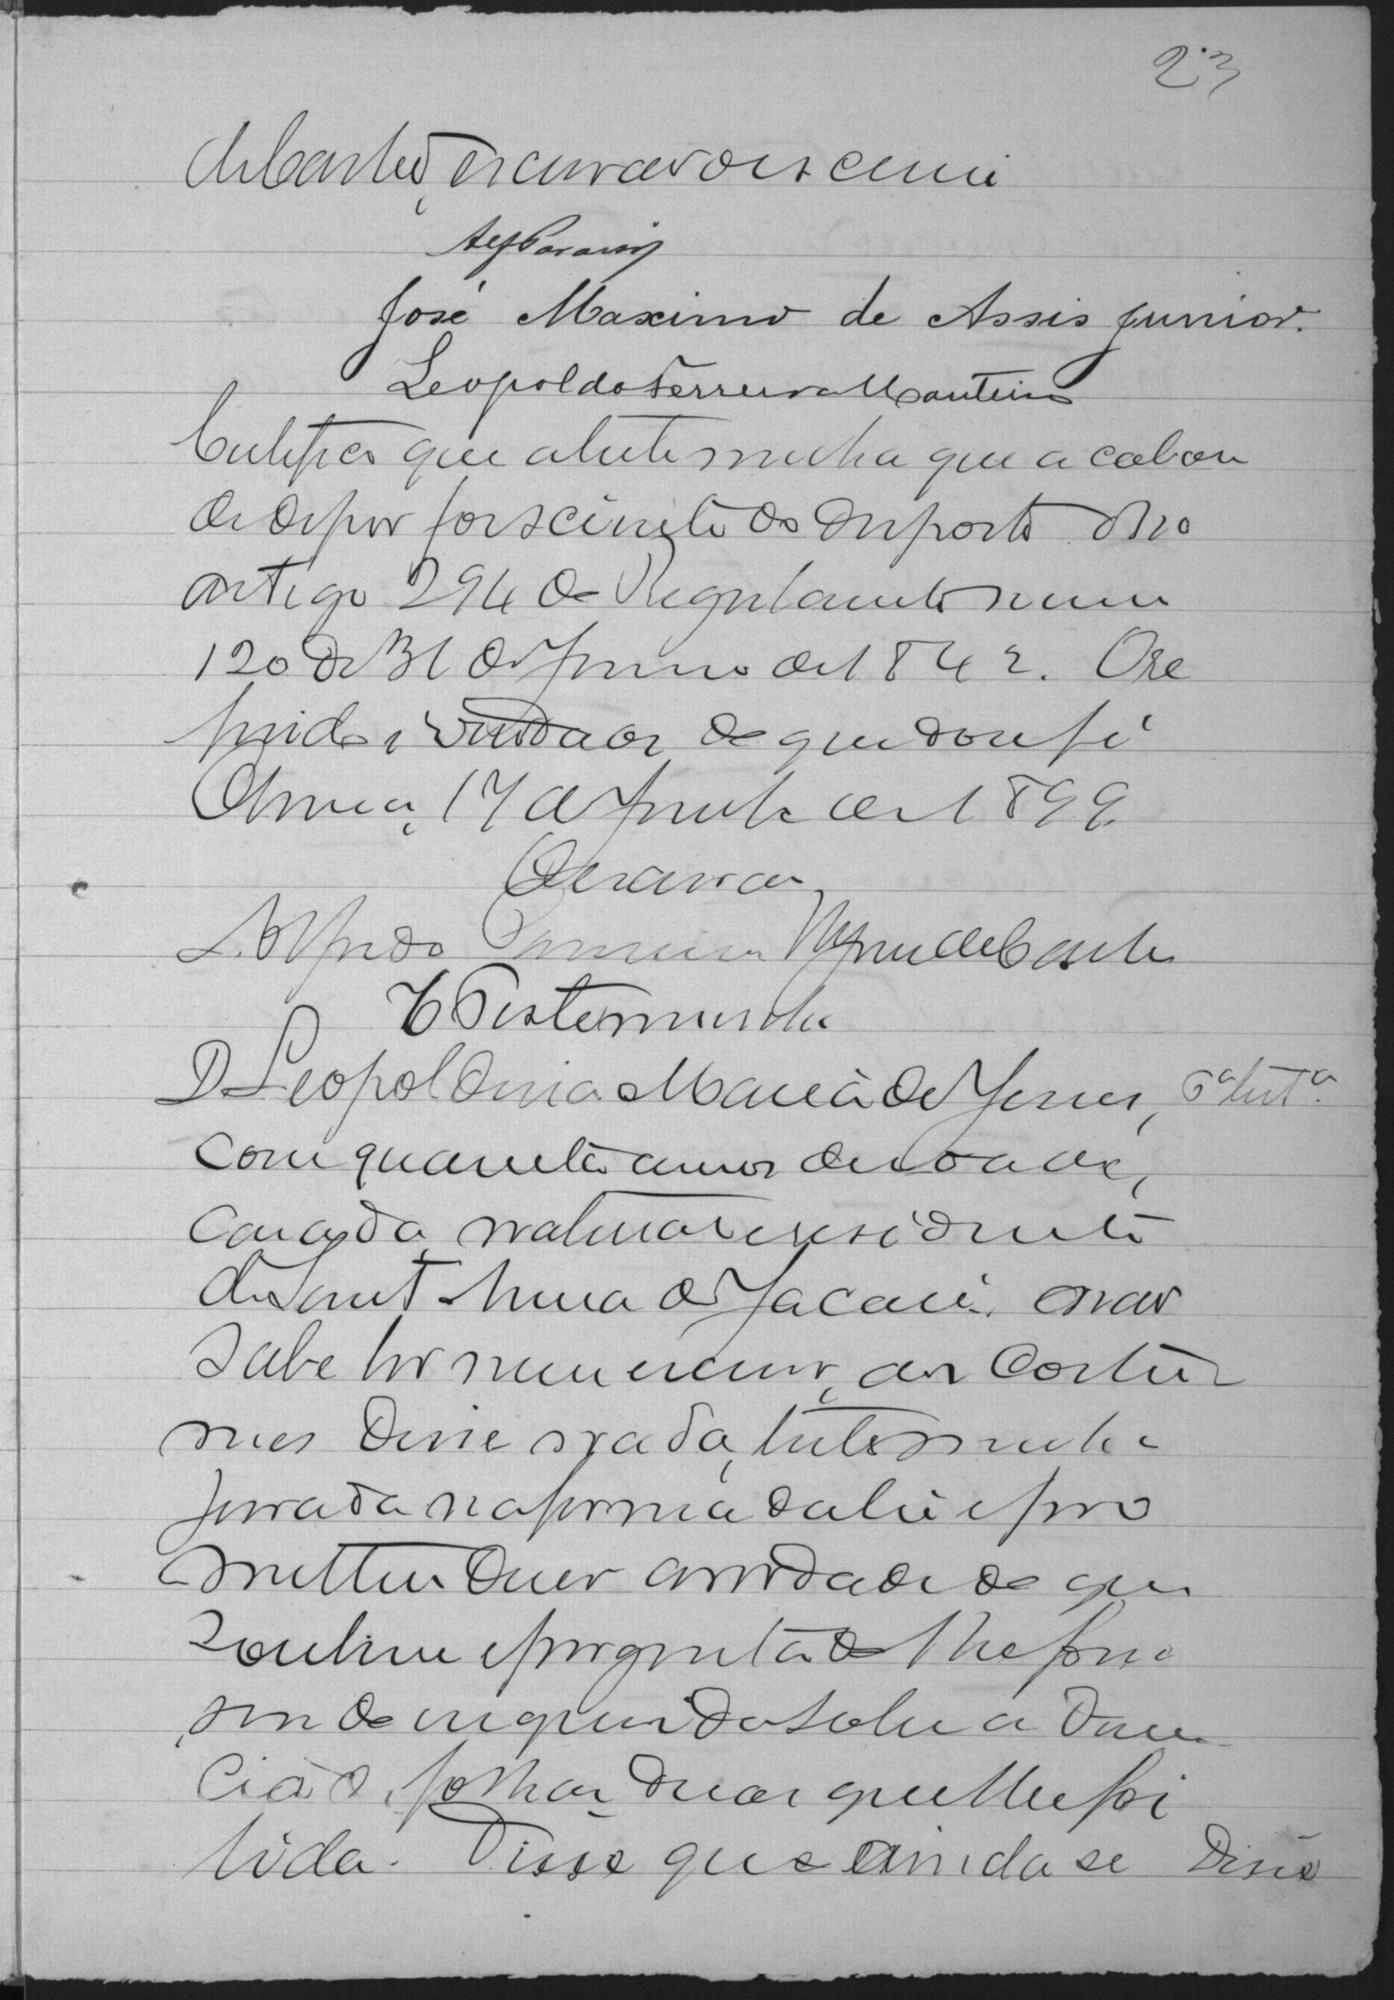 23
de Castro, escrivão o escrevi
José Maximo de Assis Junior.
Leopoldo Ferreira Monteiro
Certifico que a testemunha que acabou
de depor foi sciente do disposto no
artigo 294 do Regulamento num
120 de 31 de Janeiro de 1842. O re
ferido é verdade de que dou fé
17 de Junho de 1899
O escrivão
Alfredo de Castro
6ª Testemunha
D Leopoldina Maria de Jesus, 6ª testª.
com quarenta annos de idade,
casada, natural e residente
de Sant Anna de Jacaré. não
sabe ler nem escrever, aos costu
mes disse nada, testemunha
jurada na forma da lei e pro
metteu dizer a verdade do que
soubesse e perguntado lhe fosse
sendo inquirida sobre a denun
cia de folhas duas que lhe foi
lida. Disse que ainda se disse